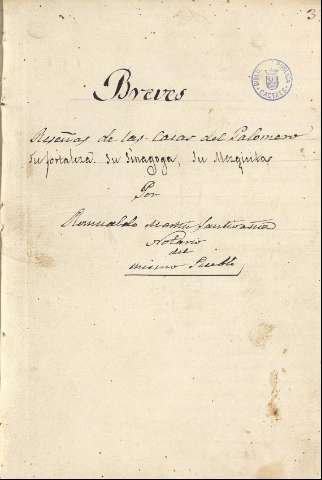 3
Breves
Reseñas de las Casas del Palomero
Su fortaleza. Su Sinagoga, Su Mezquita
Por
Romualdo Martin Santivañez
Notario
del
mismo Pueblo
CACERES